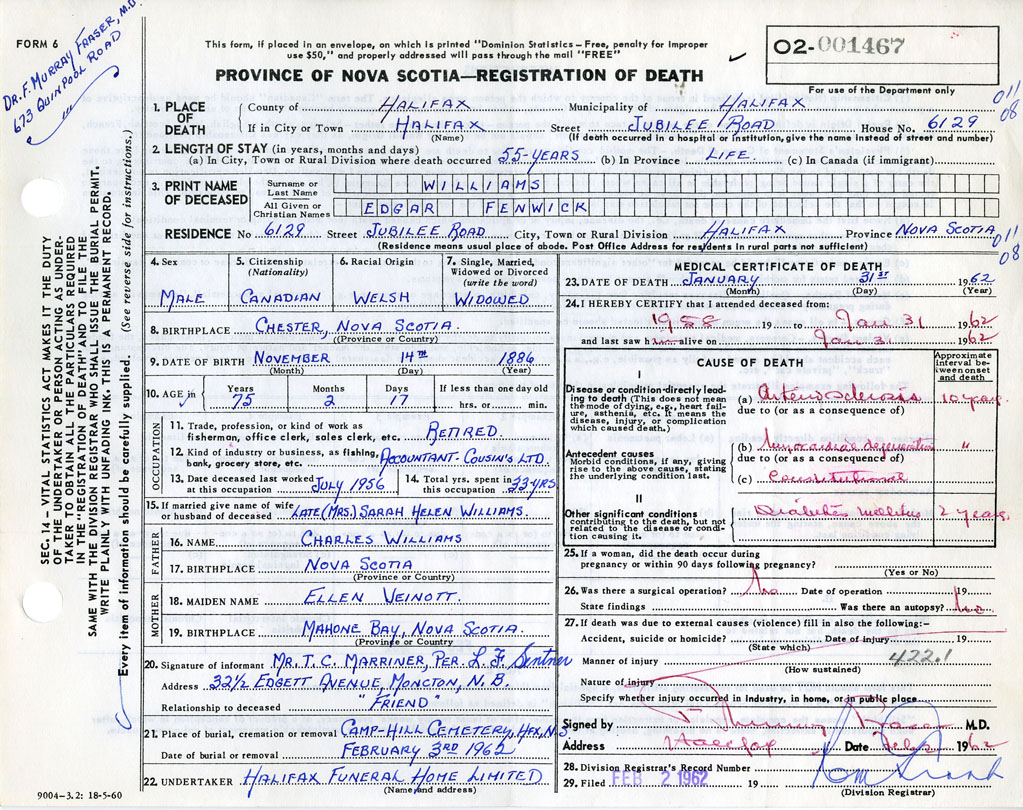 FORM 6
DR. F. MURRAY FRASER, M.D.
673 QUINPOOL ROAD
This form, if placed in an envelope, on which is printed "Dominion Statistics – Free, penalty for improper
use $50," and properly addressed will pass through the mail "FREE"
PROVINCE OF NOVA SCOTIA—REGISTRATION OF DEATH
O2-001467
For use of the Department only
011
08
1. PLACE OF DEATH
County of HALIFAX Municipality of HALIFAX
If in City or Town HALIFAX Street JUBILEE ROAD House No. 6129
(Name) (If death occurred in a hospital or institution, give the name instead of street and number)
2. LENGTH OF STAY (in years, months and days)
(a) In City, Town or Rural Division where death occurred 55-YEARS (b) In Province LIFE. (c) In Canada (if immigrant)
3. PRINT NAME OF DECEASED
Surname or Last Name WILLIAMS
All Given or Christian Names EDGAR FENWICK
RESIDENCE No 6129 Street JUBILEE ROAD City, Town or Rural Division HALIFAX Province NOVA SCOTIA
(Residence means usual place of abode. Post Office Address for residents in rural parts not sufficient)
011
08
SEC. 14 – VITAL STATISTICS ACT MAKES IT THE DUTY
OF THE UNDERTAKER OR PERSON ACTING AS UNDER-
TAKER TO OBTAIN ALL THE PARTICULARS REQUIRED
IN THE "REGISTRATION OF DEATH" AND TO FILE THE
SAME WITH THE DIVISION REGISTRAR WHO SHALL ISSUE THE BURIAL PERMIT.
WRITE PLAINLY WITH UNFADING INK. THIS IS A PERMANENT RECORD.
Every item of information should be carefully supplied. (See reverse side for instructions.)
4. Sex
MALE
5. Citizenship
(Nationality)
CANADIAN
6. Racial Origin
WELSH
7. Single, Married,
Widowed or Divorced
(write the word)
WIDOWED
8. BIRTHPLACE CHESTER, NOVA SCOTIA.
(Province or Country)
9. DATE OF BIRTH NOVEMBER 14TH 1886
(Month) (Day) (Year)
10. AGE in Years Months Days If less than one day old
75 2 17 hrs. or min.
OCCUPATION
11. Trade, profession, or kind of work as
fisherman, office clerk, sales clerk, etc. RETIRED
12. Kind of industry or business, as fishing,
bank, grocery store, etc. ACCOUNTANT-COUSIN'S LTD.
13. Date deceased last worked at this occupation JULY 1956 14. Total yrs. spent in this occupation 33-YRS.
15. If married give name of wife
or husband of deceased LATE (MRS.) SARAH HELEN WILLIAMS.
FATHER
16. NAME CHARLES WILLIAMS
17. BIRTHPLACE NOVA SCOTIA
(Province or Country)
MOTHER
18. MAIDEN NAME ELLEN VEINOTT.
19. BIRTHPLACE MAHONE BAY, NOVA SCOTIA.
(Province or Country
20. Signature of informant MR. T. C. MARRINER, PER. L. F. Sentner
Address 32½ EDGETT AVENUE, MONCTON, N.B.
Relationship to deceased "FRIEND"
21. Place of burial, cremation or removal CAMP-HILL CEMETERY, HFX, N.S.
Date of burial or removal FEBRUARY 3RD 1962
22. UNDERTAKER HALIFAX FUNERAL HOME LIMITED
(Name and address)
9004-3.2: 18-5-60
MEDICAL CERTIFICATE OF DEATH
23. DATE OF DEATH JANUARY 31ST 1962
(Month) (Day) (Year)
24. I HEREBY CERTIFY that I attended deceased from:
1958 19 to Jan 31 1962
and last saw him alive on Jan 31 1962
CAUSE OF DEATH
Approximate interval between onset and death
I
Disease or condition directly lead-
ing to death (This does not mean
the mode of dying, e.g., heart fail-
ure, asthenia, etc. It means the
disease, injury, or complication
which caused death.)
(a) Arteriosclerosis 10 years
due to (or as a consequence of)
Antecedent causes
Morbid conditions, if any, giving
rise to the above cause, stating
the underlying condition last.
(b) Myocardial degeneration "
due to (or as a consequence of)
(c) Constitutional
II
Other significant conditions
contributing to the death, but not
related to the disease or condi-
tion causing it.
Diabetes mellitus 2 years
25. If a woman, did the death occur during
pregnancy or within 90 days following pregnancy?
(Yes or No)
26. Was there a surgical operation? No Date of operation 19
State findings Was there an autopsy? No
27. If death was due to external causes (violence) fill in also the following:-
Accident, suicide or homicide? Date of injury 19
(State which)
Manner of injury 422.1
(How sustained)
Nature of injury
Specify whether injury occurred in industry, in home, or in public place
Signed by F. Murray Fraser M.D.
Address Halifax Date Feb 2 1962
28. Division Registrar's Record Number
29. Filed FEB 2 1962 19
(Division Registrar)